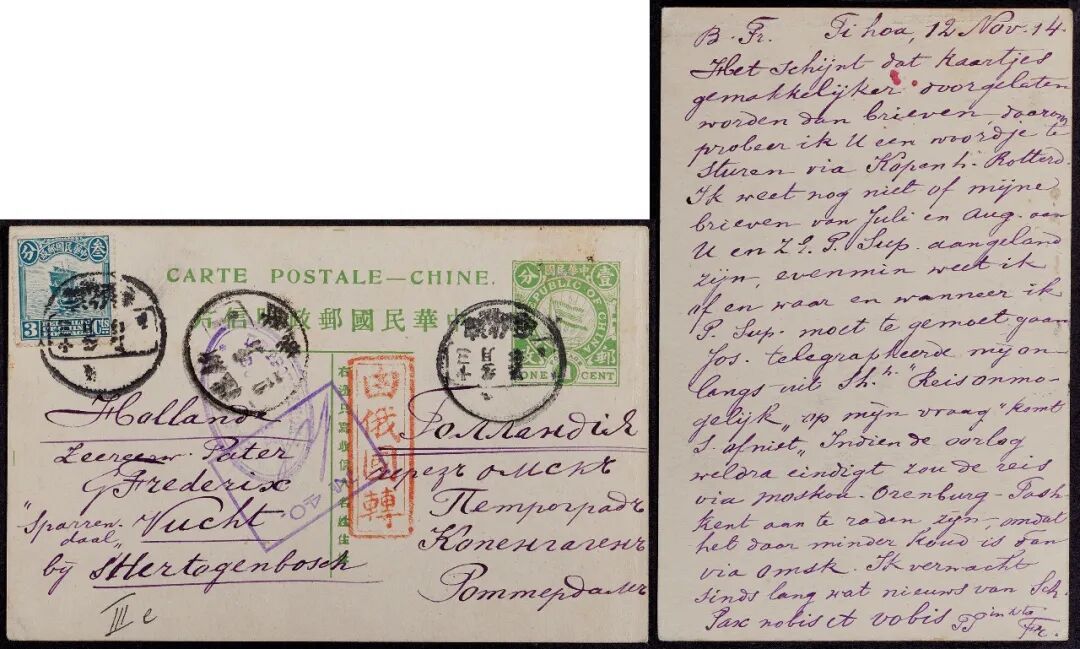 叁
分
中華民國郵政
3
Cts
CARTE POSTALE—CHINE.
中華民國郵政明信片
分
中華民國
壹
REPUBLIC OF CHINA
郵
ONE
1
CENT
由俄國轉
Holland
Zeereerw. Pater
G Frederix
"Sparren-
daal"
Vucht
by s'Hertogenbosch
IIIe
Голландія
чрезъ Омскъ
Петроградъ
Копенгагенъ
Роттердамъ
B. Fr. Ti hoa, 12 Nov. 14.
Het schijnt dat kaartjes
gemakkelijker doorgelaten
worden dan brieven, daarom
probeer ik U een woordje te
sturen via Kopenh. Rotterd.
Ik weet nog niet of mijne
brieven van Juli en Aug. aan
U en Z.E.P. Sup. aangeland
zijn, evenmin weet ik
of en waar en wanneer ik
P. Sup. moet te gemoet gaan
Jos. telegrapheerde mij on-
langs uit Sh. "Reis onmo-
gelijk" op mijn vraag "komt
S. af niet" Indien de oorlog
weldra eindigt zou de reis
via Moskou-Orenburg-Tash
kent aan te raden zijn, omdat
het daar minder koud is dan
via Omsk. Ik verwacht
sinds lang wat nieuws van Sch.
Pax nobis et vobis